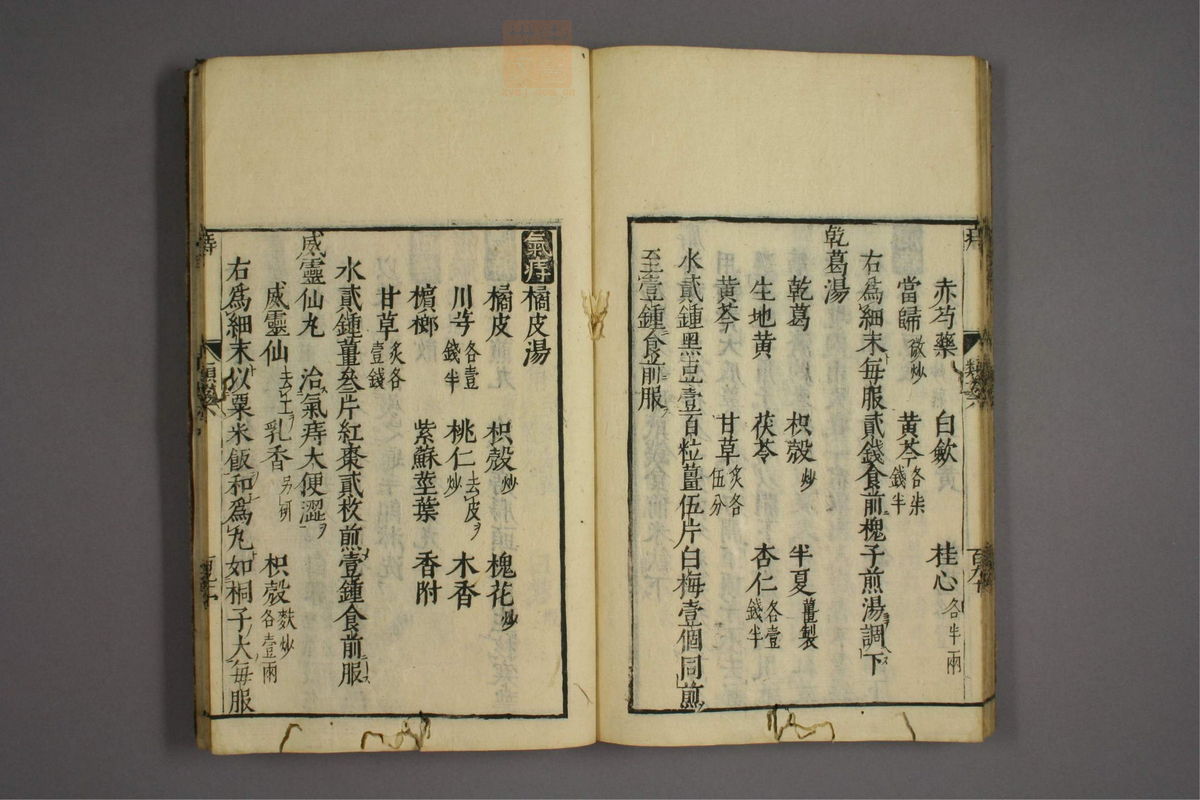 赤芍藥 白歛 桂心各半兩
當歸微炒 黃芩各柒錢半
右爲細末每服貳錢食前槐子煎湯調下
乾葛湯
乾葛 枳殼炒 半夏薑製
生地黃 茯苓 杏仁各壹錢半
黃芩 甘草炙各伍分
水貳鍾黑豆壹百粒薑伍片白梅壹個同煎
至壹鍾食前服
氣痔橘皮湯
橘皮 枳殼炒 槐花炒
川芎各壹錢半 桃仁去皮炒 木香
檳榔 紫蘇莖葉 香附
甘草炙各壹錢
水貳鍾薑叄片紅棗貳枚煎壹鍾食前服
威靈仙丸 治氣痔大便澀
威靈仙去土 乳香另研 枳殼麩炒各壹兩
右爲細末以粟米飯和爲丸如桐子大每服